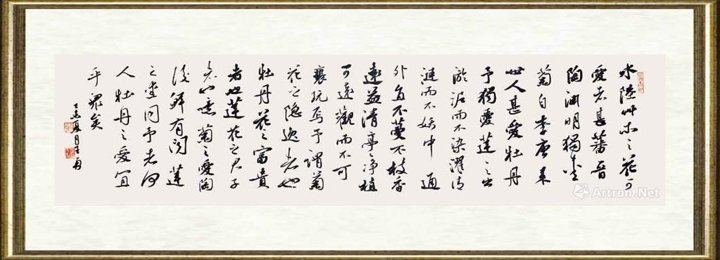 水陸艸木之花可
愛者甚蕃晉
陶淵明獨愛
菊自李唐来
世人甚愛牡丹
予獨愛蓮之出
淤泥而不染濯清
漣而不妖中通
外直不蔓不枝香
遠益清亭亭净植
可遠觀而不可
褻玩焉予謂菊
花之隐逸者也
牡丹花之富貴
者也蓮花之君子
者也噫菊之愛陶
後鲜有闻蓮
之愛同予者何
人牡丹之愛宜
乎衆矣
Artron.Net